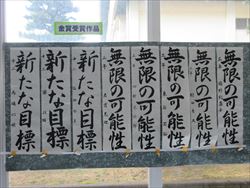 金賞受賞作品
無限の可能性
無限の可能性
無限の可能性
無限の可能性
無限の可能性
新たな目標
新たな目標
新たな目標